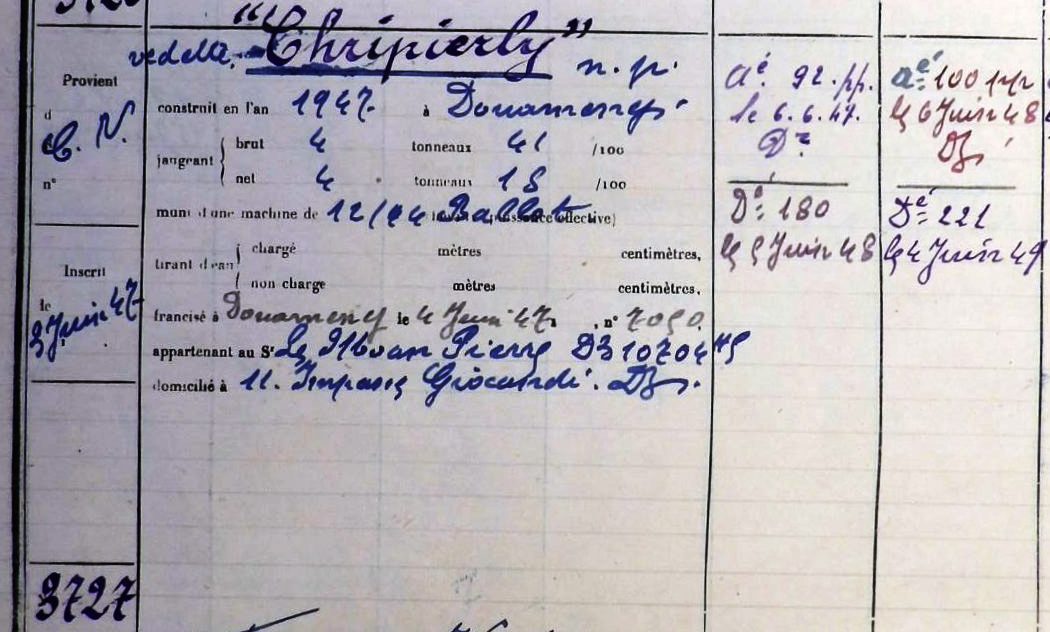 "Chripierly"
vedette n. p.
Provient
d
C. N.
n°
construit en l'an 1947 à Douarnenez
jaugeant { brut 4 tonneaux 41 /100
net 4 tonneaux 18 /100
muni d'une machine de 12/14 Ballot (puissance effective)
tirant d'eau { chargé mètres centimètres,
non chargé mètres centimètres,
Inscrit
le
3 Juin 47
francisé à Douarnenez le 4 Juin 47, n° 7050
appartenant au Sr Le Pierre DZ 10704
domicilié à 11. Impasse Giocondi. DZ.
Aé: 92. pp.
le 6.6.47.
Dz
Dé: 180
le 5 Juin 48
Aé: 100
le 6 Juin 48
Dz
Dé: 221
le 4 Juin 49
3727